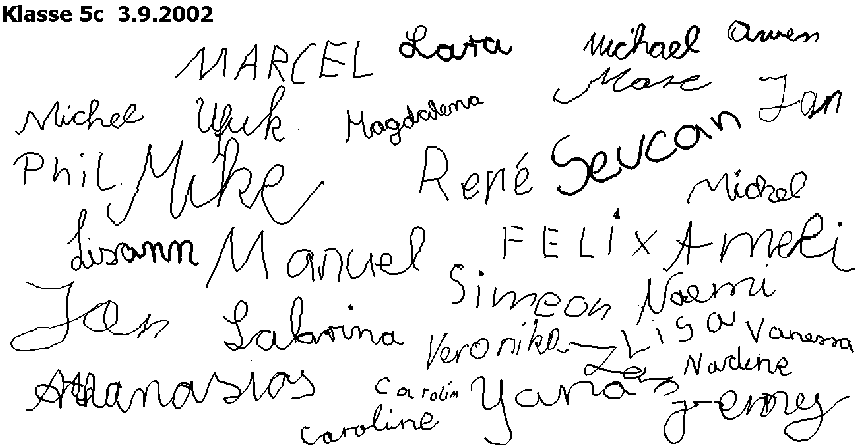 Klasse 5c 3.9.2002
MARCEL Lara Michael Owen
Michel Ufuk Magdalena Marc Jan
Phil Mike René Sevcan Michel
Lisann Manuel FELIX Ameli
Jan Sabrina Simeon Noemi
Veronika Lisa Vanessa
Athanasios Carolin Yana Nadine
Caroline Jenny